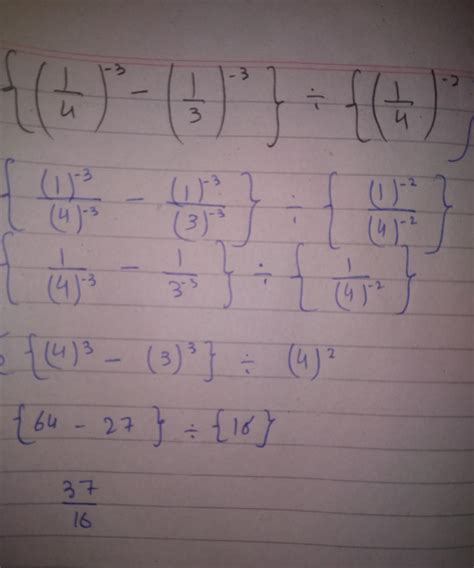 {(1/4)^-3 - (1/3)^-3} ÷ {(1/4)^-2}
{(1)^-3/(4)^-3 - (1)^-3/(3)^-3} ÷ {(1)^-2/(4)^-2}
{1/(4)^-3 - 1/3^-3} ÷ {1/(4)^-2}
{(4)^3 - (3)^3} ÷ (4)^2
{64 - 27} ÷ {16}
37/16